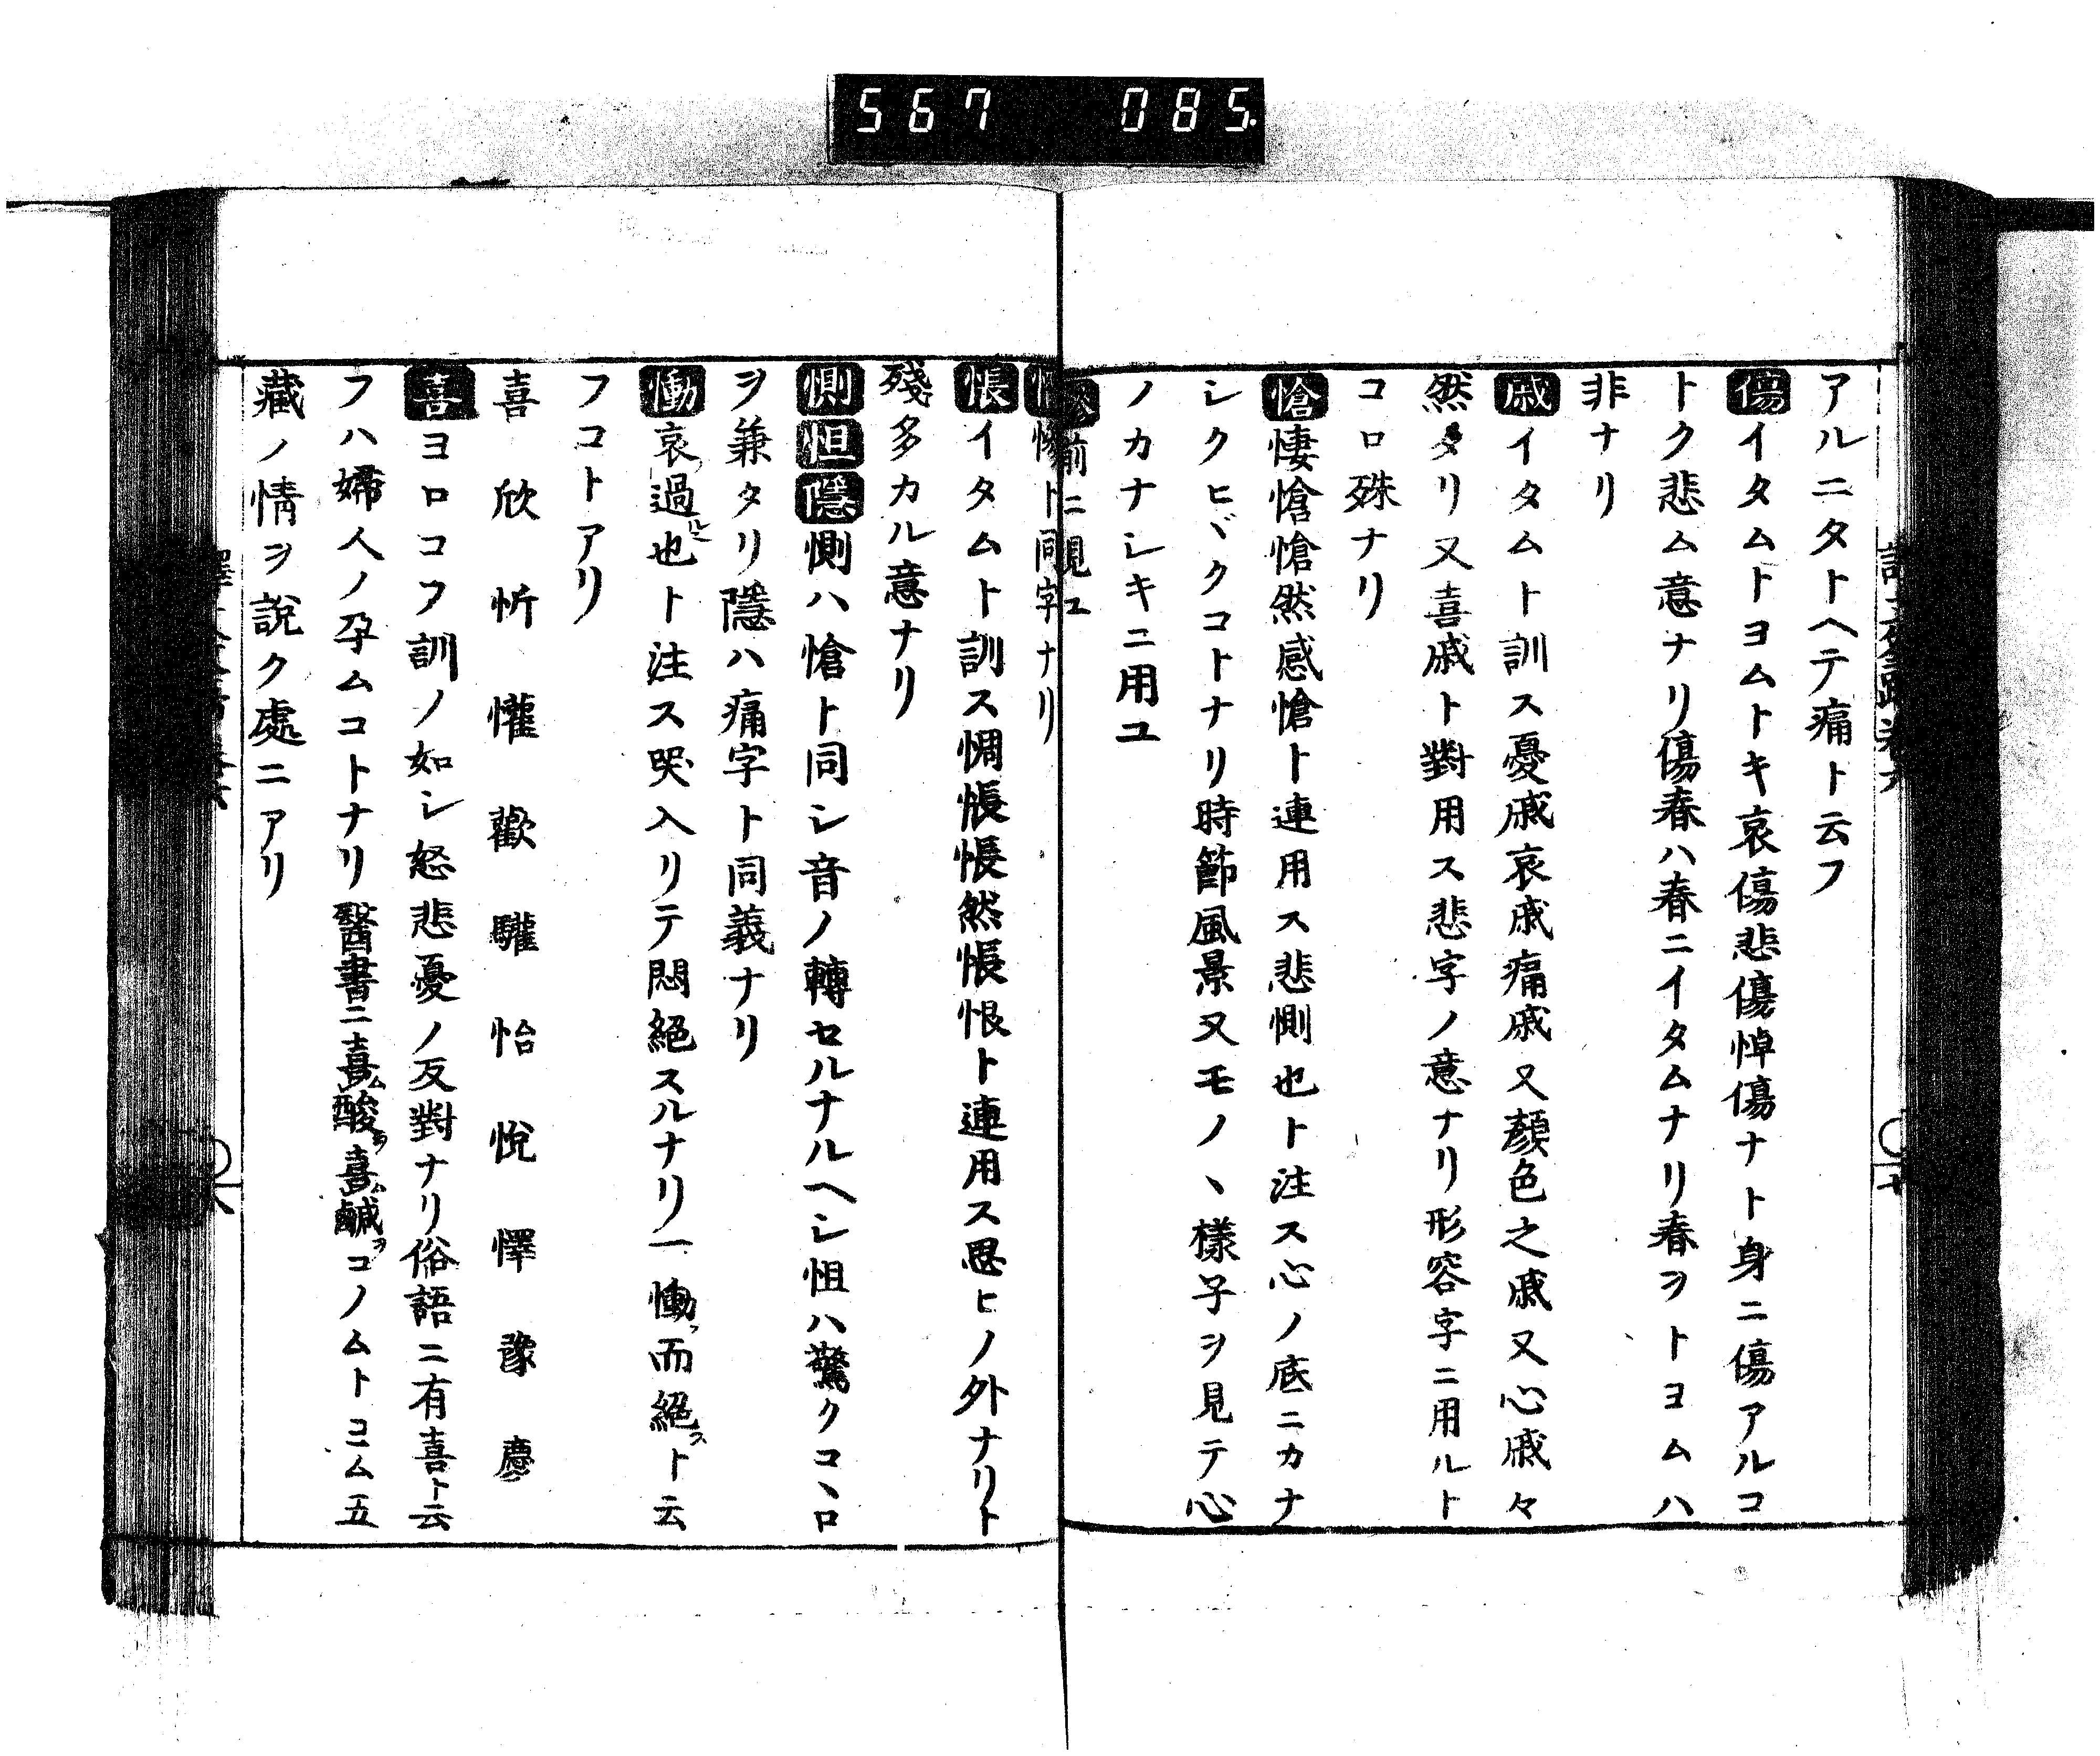 567 085.
アルニタトヘテ痛ト云フ
傷イタムトヨムトキ哀傷悲傷悼傷ナト身ニ傷アルコ
トク悲ム意ナリ傷春ハ春ニイタムナリ春ヲトヨムハ
非ナリ
戚イタムト訓ス憂戚哀戚痛戚又顏色之戚又心戚々
然タリ又喜戚ト對用ス悲字ノ意ナリ形容字ニ用ルト
コロ殊ナリ
愴悽愴愴然感愴ト連用ス悲惻也ト注ス心ノ底ニカナ
シクヒヾクコトナリ時節風景又モノヽ樣子ヲ見テ心
ノカナシキニ用ユ
前ニ見ユ
ト同字ナリ
悵イタムト訓ス惆悵悵然悵恨ト連用ス思ヒノ外ナリト
殘多カル意ナリ
惻怛隱惻ハ愴ト同シ音ノ轉セルナルヘシ怛ハ驚クコヽロ
ヲ兼タリ隱ハ痛字ト同義ナリ
慟哀過ル也ト注ス哭入リテ悶絕スルナリ一慟而絕スト云
フコトアリ
喜欣忻懽歡驩怡悅懌豫慶
喜ヨロコフ訓ノ如シ怒悲憂ノ反對ナリ俗語ニ有喜ト云
フハ婦人ノ孕ムコトナリ醫書ニ喜ム酸ヲ喜ム鹹ヲコノムトヨム五
藏ノ情ヲ說ク處ニアリ